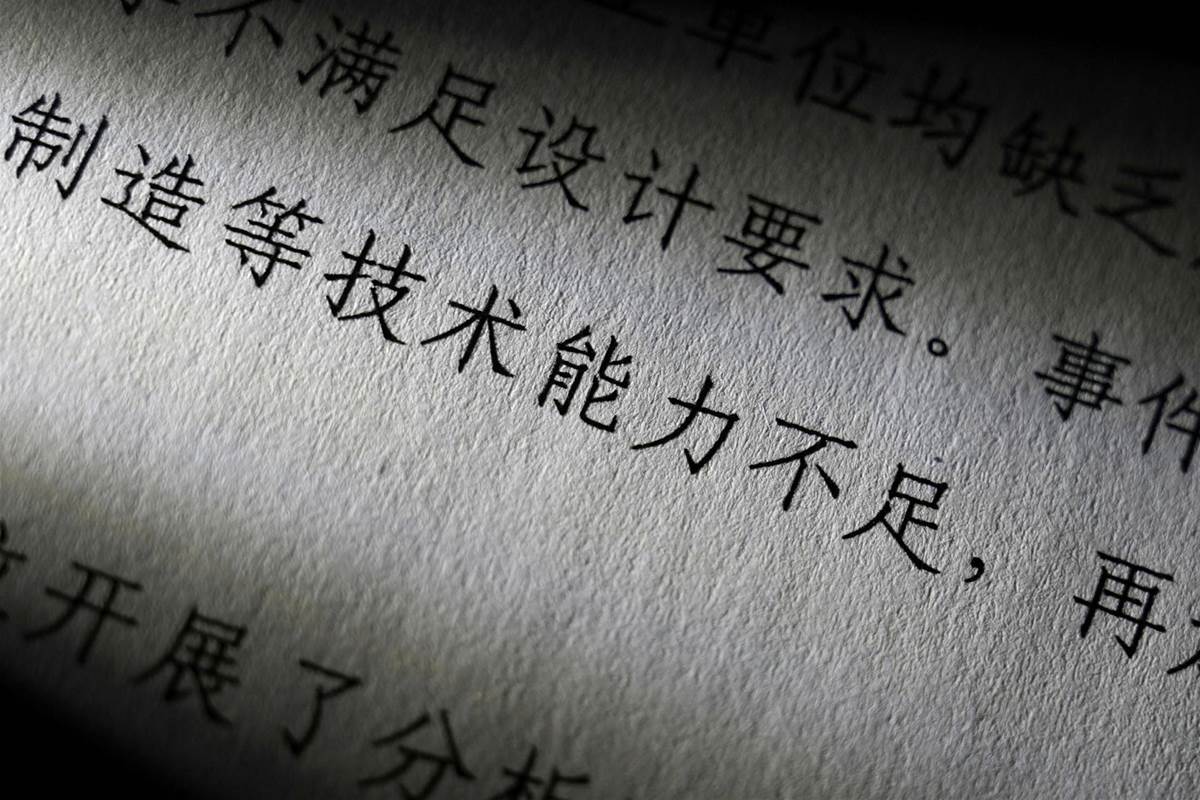 单位均缺乏
不满足设计要求。事件
制造等技术能力不足，再
开展了分析